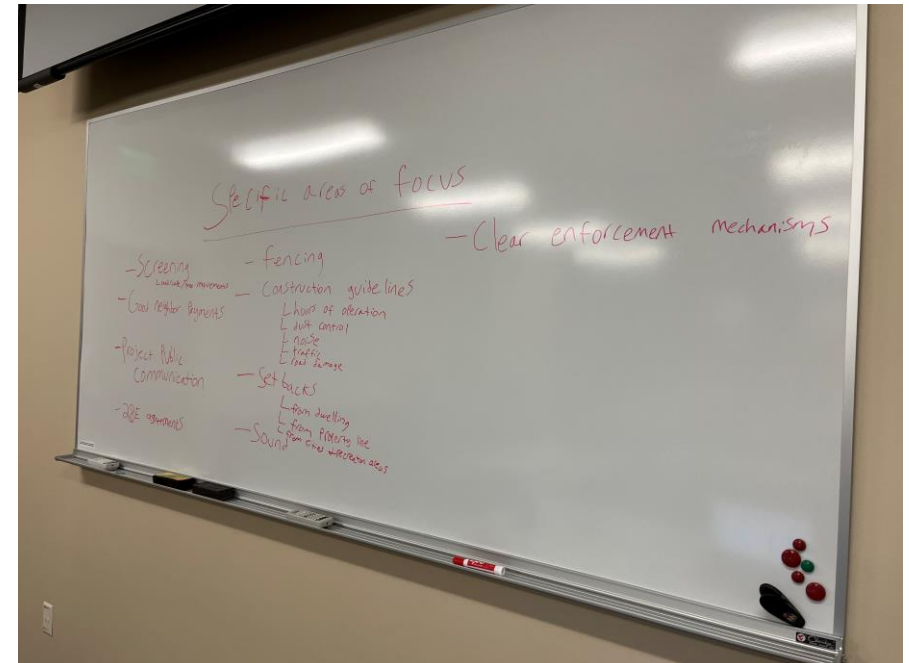 Specific areas of focus
- Screening
- Good neighbor Payments
- Project Public
Communication
- 28E agreements
- fencing
- Construction guidelines
hours of operation
dust control
noise
traffic
road damage
- Setbacks
from dwelling
from Property line
from cities recreation areas
- Sound
- Clear enforcement mechanisms